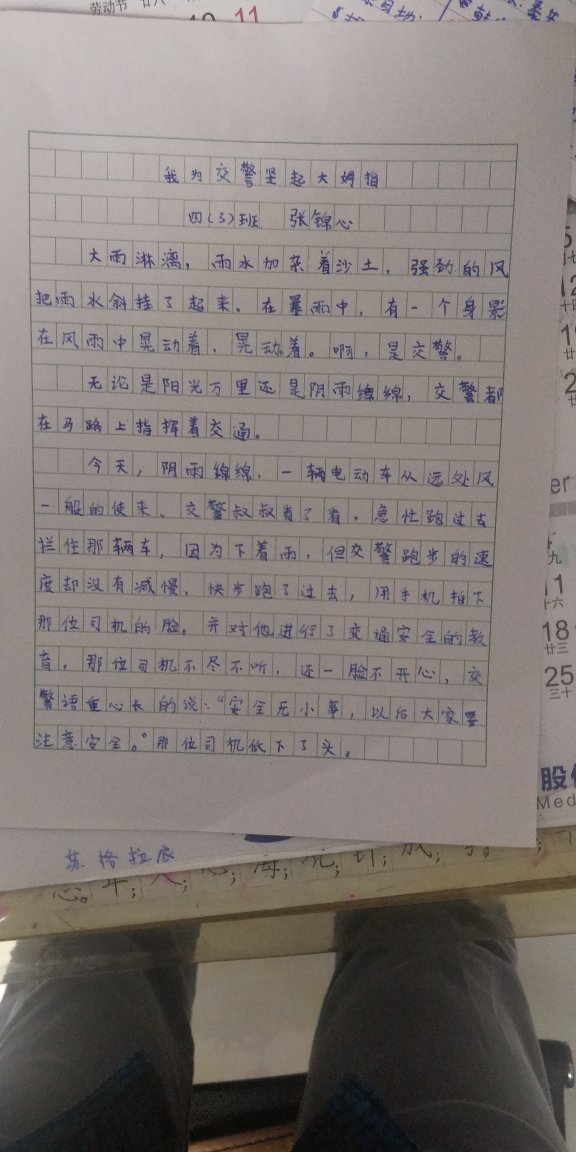 劳动节 廿八 10 11
我为交警竖起大姆指
四(3)班 张锦心
大雨淋漓，雨水加杂着沙土，强劲的风
把雨水斜挂了起来。在暴雨中，有一个身影
在风雨中晃动着，晃动着。啊，是交警。
无论是阳光万里还是阴雨绵绵，交警都
在马路上指挥着交通。
今天，阴雨绵绵，一辆电动车从远处风
一般的使来。交警叔叔看了看，急忙跑过去
拦住那辆车，因为下着雨，但交警跑步的速
度却没有减慢，快步跑了过去，用手机拍下
那位司机的脸。并对他进行了交通安全的教
育，那位司机不尽不听，还一脸不开心，交
警语重心长的说："安全无小事，以后大家要
注意安全。"那位司机低下了头。
九
11
十六
18
廿三
25
三十
股份
Med
苏格拉底